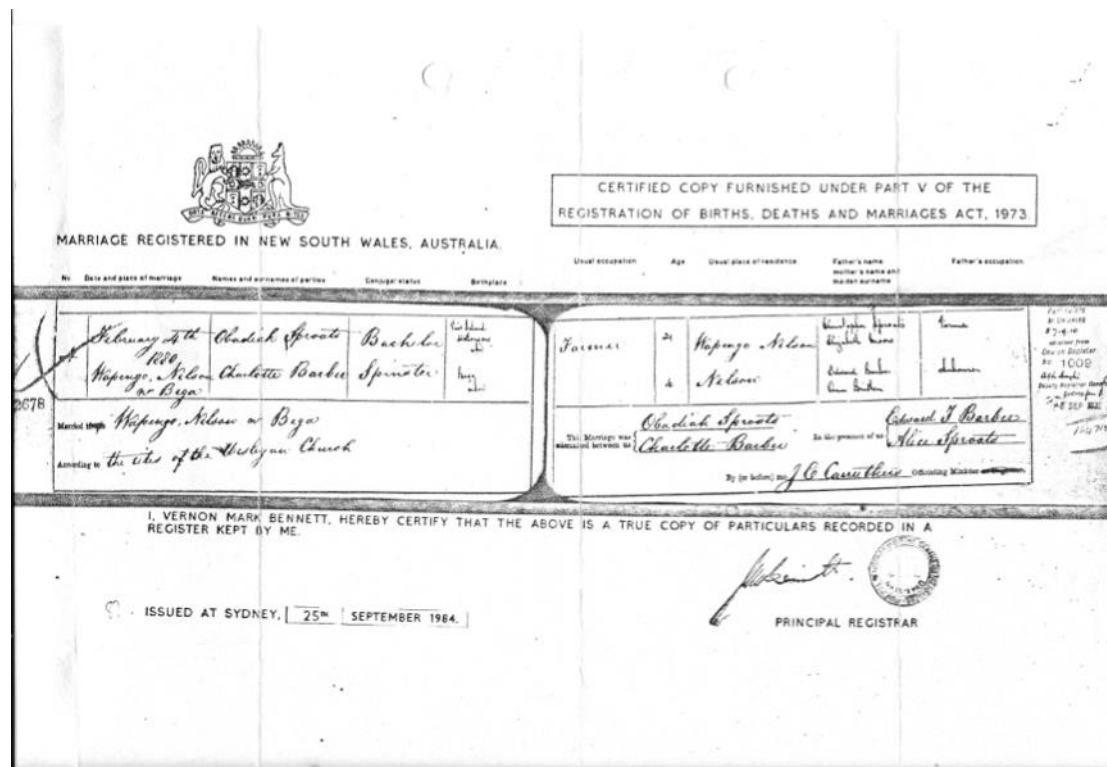 CERTIFIED COPY FURNISHED UNDER PART V OF THE
REGISTRATION OF BIRTHS, DEATHS AND MARRIAGES ACT, 1973
MARRIAGE REGISTERED IN NEW SOUTH WALES, AUSTRALIA.
Nr. Date and place of marriage Names and surnames of parties Conjugal status Birthplace Usual occupation Age Usual place of residence Father's name mother's name and maiden surname Father's occupation
February 4th Obadiah Sproats Bachelor Farmer 21 Wapengo Nelson
1880
Wapengo, Nelson Charlotte Barber Spinster Nelson
nr Bega
2678
1009
Married Wapengo, Nelson nr Bega
According to the rites of the Wesleyan Church
This Marriage was solemnized between us Obadiah Sproats
Charlotte Barber
In the presence of us Edward T Barber
Alice Sproats
By (or before) me J C Carruthers Officiating Minister
I, VERNON MARK BENNETT, HEREBY CERTIFY THAT THE ABOVE IS A TRUE COPY OF PARTICULARS RECORDED IN A
REGISTER KEPT BY ME.
ISSUED AT SYDNEY, 25TH SEPTEMBER 1984.
PRINCIPAL REGISTRAR